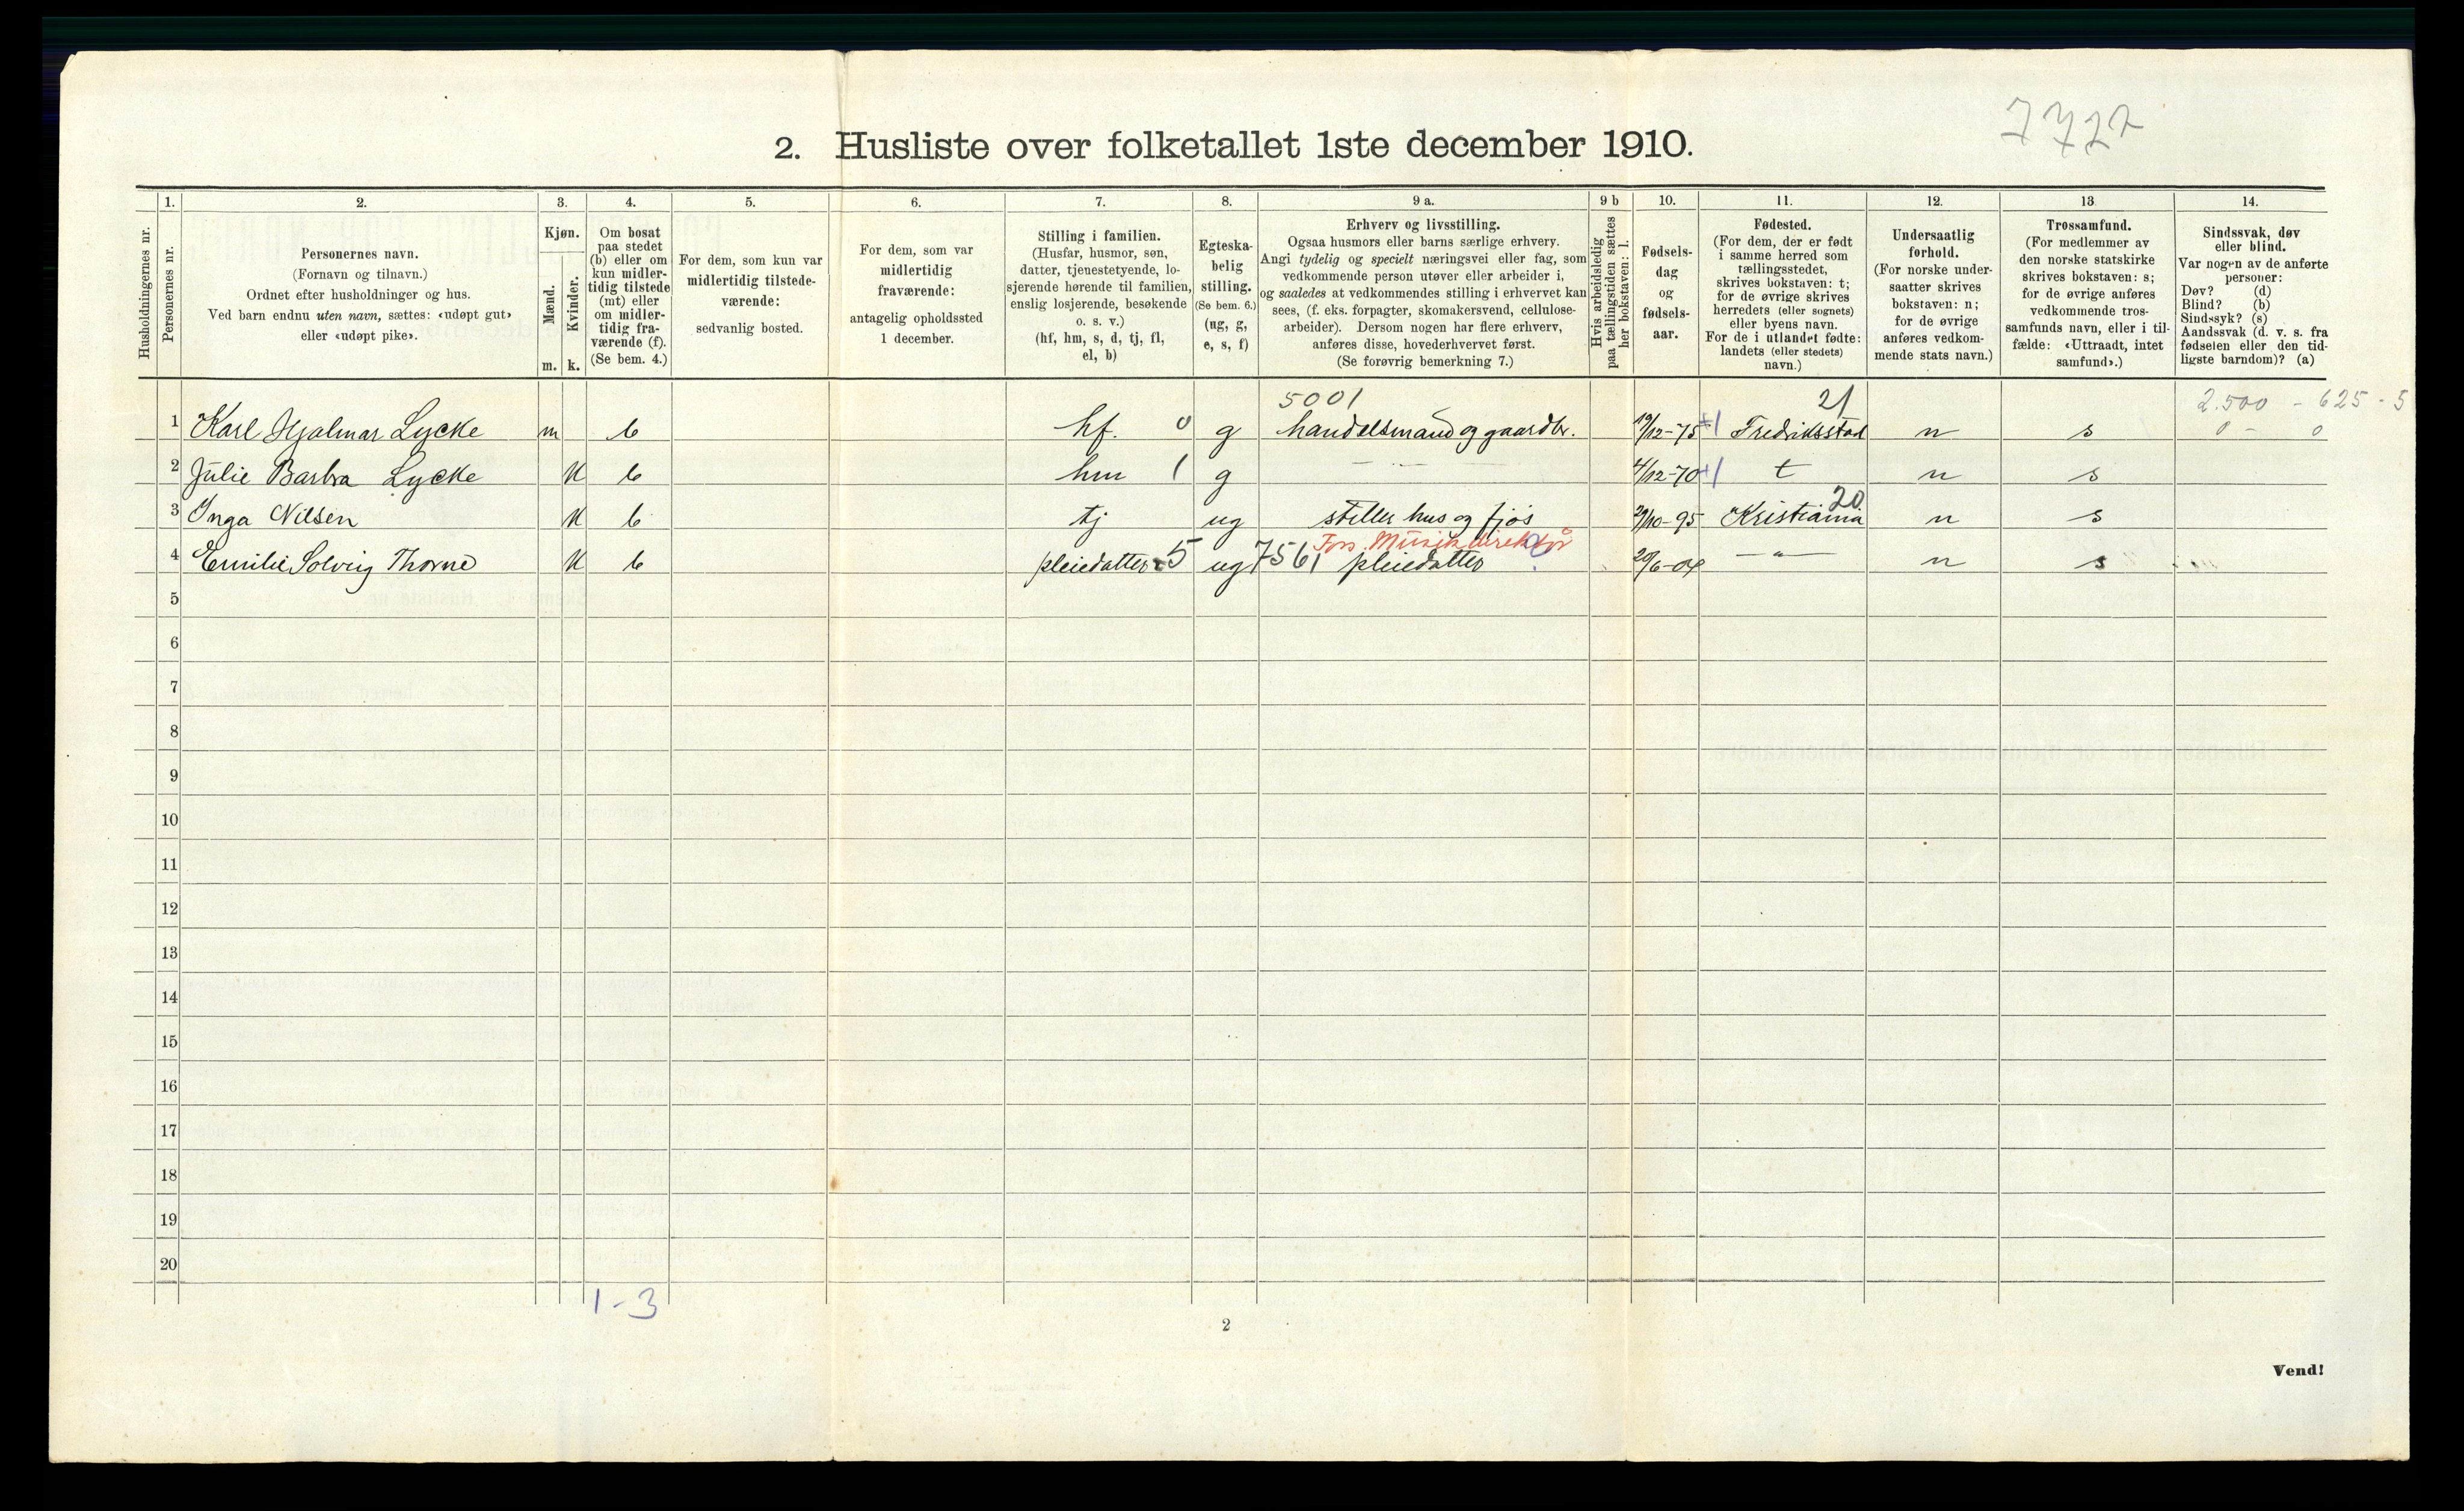 7727
2. Husliste over folketallet 1ste december 1910.
Husholdningernes nr.
1. Personernes nr.
2.
Personernes navn.
(Fornavn og tilnavn.)
Ordnet efter husholdninger og hus.
Ved barn endnu uten navn, sættes: «udøpt gut»
eller «udøpt pike».
3.
Kjøn.
Mænd. Kvinder.
m. k.
4.
Om bosat
paa stedet
(b) eller om
kun midler-
tidig tilstede
(mt) eller
om midler-
tidig fra-
værende (f).
(Se bem. 4.)
5.
For dem, som kun var
midlertidig tilstede-
værende:
sedvanlig bosted.
6.
For dem, som var
midlertidig
fraværende:
antagelig opholdssted
1 december.
7.
Stilling i familien.
(Husfar, husmor, søn,
datter, tjenestetyende, lo-
sjerende hørende til familien,
enslig losjerende, besøkende
o. s. v.)
(hf, hm, s, d, tj, fl,
el, b)
8.
Egteska-
belig
stilling.
(Se bem. 6.)
(ug, g,
e, s, f)
9 a.
Erhverv og livsstilling.
Ogsaa husmors eller barns særlige erhverv.
Angi tydelig og specielt næringsvei eller fag, som
vedkommende person utøver eller arbeider i,
og saaledes at vedkommendes stilling i erhvervet kan
sees, (f. eks. forpagter, skomakersvend, cellulose-
arbeider). Dersom nogen har flere erhverv,
anføres disse, hovederhvervet først.
(Se forøvrig bemerkning 7.)
9 b
Hvis arbeidsledig
paa tællingstiden sættes
her bokstaven: l.
10.
Fødsels-
dag
og
fødsels-
aar.
11.
Fødested.
(For dem, der er født
i samme herred som
tællingsstedet,
skrives bokstaven: t;
for de øvrige skrives
herredets (eller sognets)
eller byens navn.
For de i utlandet fødte:
landets (eller stedets)
navn.)
12.
Undersaatlig
forhold.
(For norske under-
saatter skrives
bokstaven: n;
for de øvrige
anføres vedkom-
mende stats navn.)
13
Trossamfund.
(For medlemmer av
den norske statskirke
skrives bokstaven: s;
for de øvrige anføres
vedkommende tros-
samfunds navn, eller i til-
fælde: «Uttraadt, intet
samfund».)
14.
Sindssvak, døv
eller blind.
Var nogen av de anførte
personer:
Døv? (d)
Blind? (b)
Sindssyk? (s)
Aandssvak (d. v. s. fra
fødselen eller den tid-
ligste barndom)? (a)
5001 21 2.500 - 625 - 5
1 Karl Hjalmar Lycke m b hf. 0 g handelsmand og gaardbr. 19/12-75 +1 Fredriksstad n s 0 - 0
2 Julie Barbra Lycke k b hm 1 g — " — 4/12-70 +1 t n s
20
3 Inga Nilsen k b tj ug steller hus og fjøs 29/10-95 Kristiania n s
Fors. Musikdirektør
4 Emilie Solveig Thorne k b pleiedatter 5 ug 7561 pleiedatter 20/6-04 — " — n s
5
6
7
8
9
10
11
12
13
14
15
16
17
18
19
20
1-3
2
Vend!